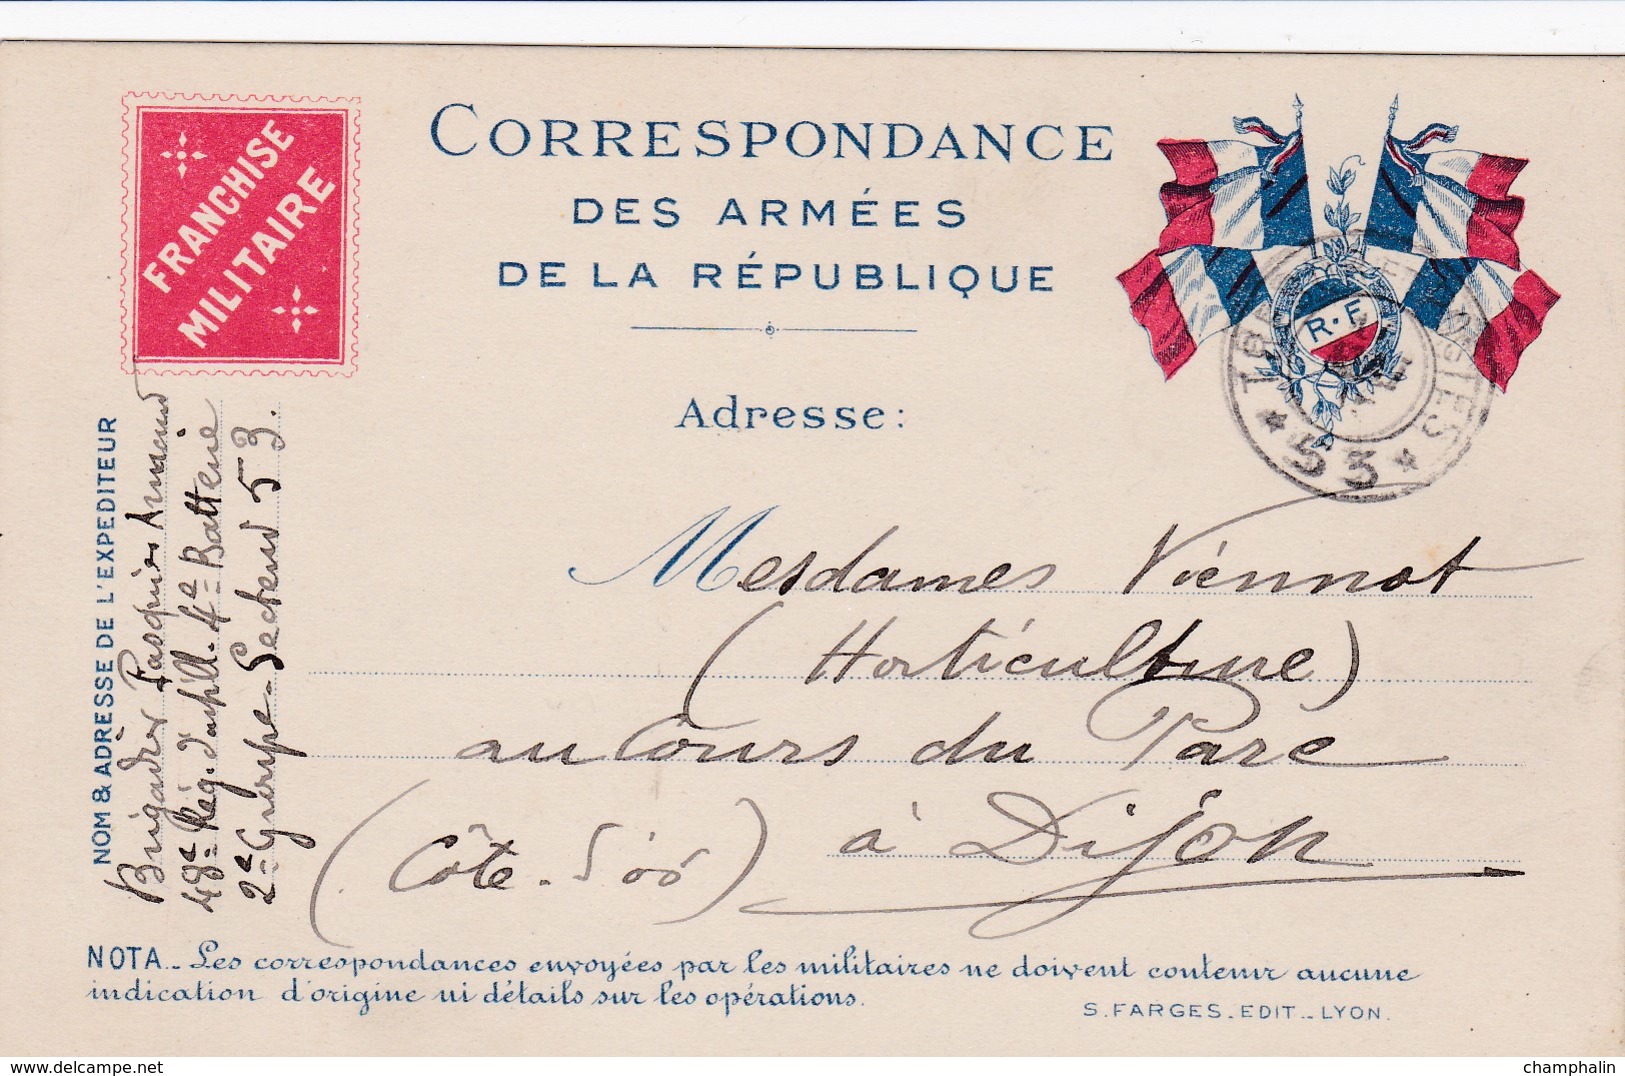 FRANCHISE
MILITAIRE
CORRESPONDANCE
DES ARMÉES
DE LA RÉPUBLIQUE
R·F
Adresse:
TRÉSOR ET POSTES
* 53 *
NOM & ADRESSE DE L'EXPEDITEUR
Brigadier Pasquier Armand
48e Rég. d'artill. 4e Batterie
2e Groupe - Secteur 53.
Mesdames Viennot
(Horticulture)
au Cours du Parc
à Dijon
(Côte-d'or)
NOTA.- Les correspondances envoyées par les militaires ne doivent contenir aucune
indication d'origine ni détails sur les opérations.
S. FARGES. EDIT.. LYON.
delcampe.net
champhalin